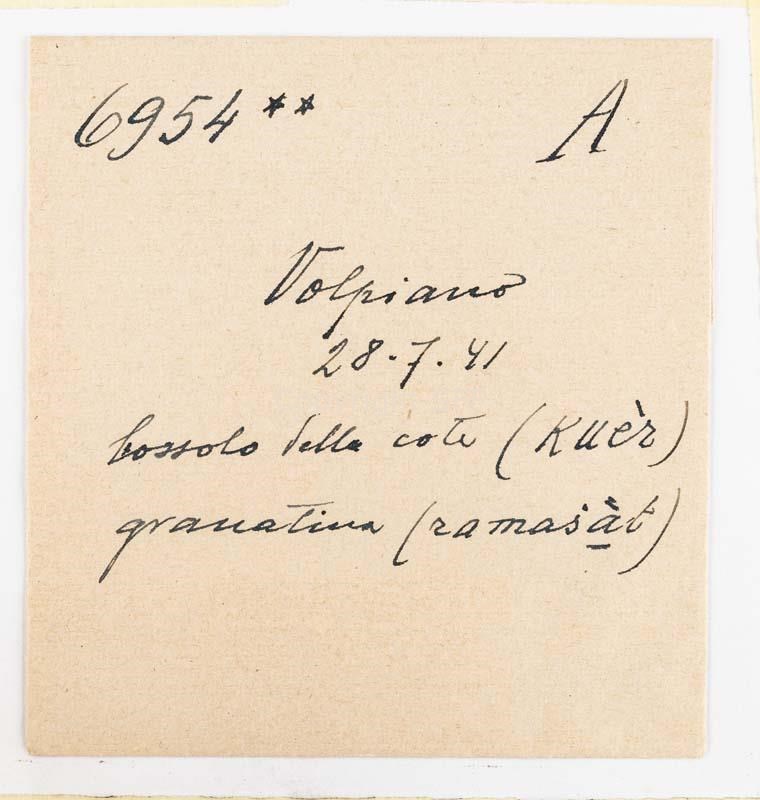 6954 ** A
Volpiano
28.7.41
bossolo della cote (kuèr)
granatina (ramaṡà̱t)